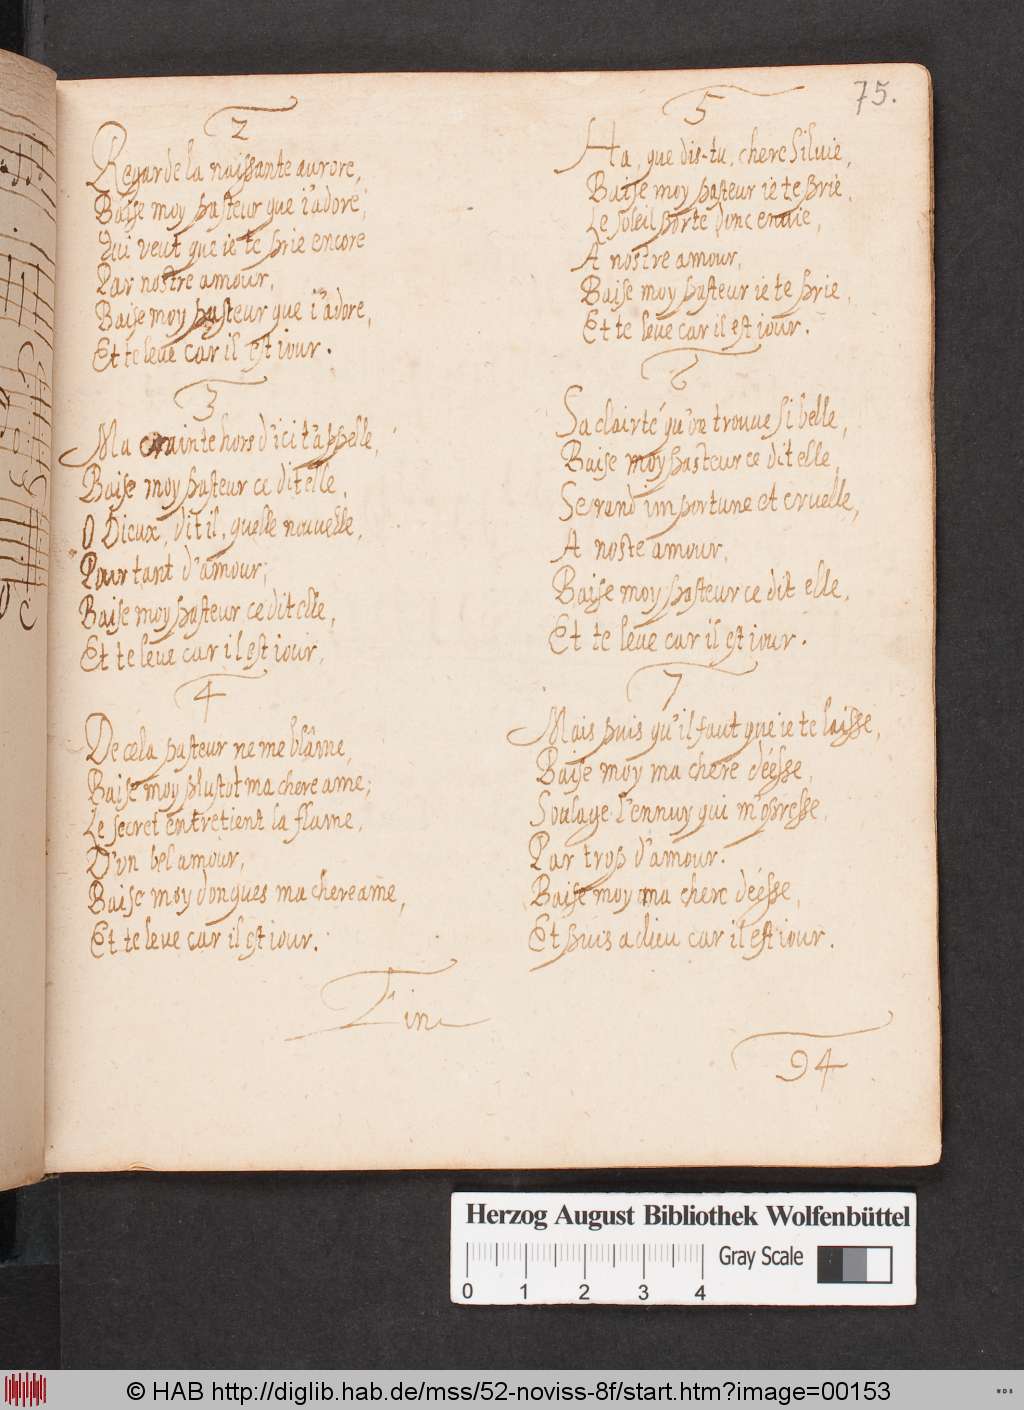 75.
2
Regarde la naissante aurore,
Baise moy pasteur que i'adore,
Qui veut que ie te prie encore
Par nostre amour,
Baise moy pasteur que i'adore,
Et te leue car il est iour.
3
Ma crainte hors d'ici t'appelle,
Baise moy pasteur ce dit elle,
O Dieux, dit il, quelle nouuelle,
Pour tant d'amour;
Baise moy pasteur ce dit elle,
Et te leue car il est iour,
4
De cela pasteur ne me blâme,
Baise moy plustot ma chere ame;
Le secret entretient la flame,
D'vn bel amour,
Baise moy donques ma chere ame,
Et te leue car il est iour.
5
Ha, que dis-tu, chere Siluie,
Baise moy pasteur ie te prie,
Le soleil porte donc enuie,
A nostre amour,
Baise moy pasteur ie te prie,
Et te leue car il est iour.
6
Sa clairté qu'on trouue si belle,
Baise moy pasteur ce dit elle,
Se rend importune et cruelle,
A noste amour,
Baise moy pasteur ce dit elle,
Et te leue car il est iour.
7
Mais puis qu'il faut que ie te laisse,
Baise moy ma chere déesse,
Soulage l'ennuy qui m'opresse,
Par trop d'amour.
Baise moy ma chere déesse,
Et puis adieu car il est iour.
Fine
94
Herzog August Bibliothek Wolfenbüttel
Gray Scale
0 1 2 3 4
© HAB http://diglib.hab.de/mss/52-noviss-8f/start.htm?image=00153